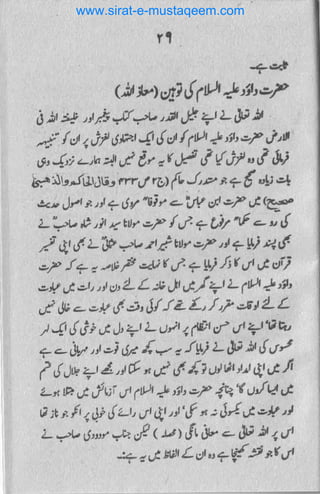 www.sirat-e-mustaqeem.com
۲۹
ثابت ہے۔
حضرت داؤد علیہ السلام کی توہین (معاذ اللہ)
اللہ تعالیٰ نے اپنے جلیل القدر صاحب کتاب پیغمبر اور خلیفۃ اللہ فی
الارض حضرت داؤد علیہ السلام کو ان کی ایک اجتہادی لغزش پر ان کو تنبیہہ
فرمائی تھی وہ لغزش کیا تھی اس کی تفصیل کا یہ موقع نہیں البتہ ہمارے نزدیک وہی
بات زیادہ صحیح ہے جو مستدرک حاکم (ج۲ ص۴۳۳ وقال الحاکم والذھبی
صحیح) میں حضرت ابن عباسؓ سے موقوفاً مروی ہے اور جو اصول حدیث
کے رو سے حکماً مرفوع ہے جس کو حضرت مولانا سید انور شاہ صاحبؒ نے
بھی پسند فرمایا ہے اور حضرت مولانا شبیر احمد صاحب عثمانیؒ نے بھی اپنی تفسیر
میں اس کا ذکر فرمایا ہے جس کا نہایت مختصر خلاصہ یہ ہے کہ حضرت
داؤد علیہ السلام نے اپنے گھر میں اہل خانہ کے لئے دن اور رات میں عبادت
کے لئے اوقات مقرر کر رکھے تھے کہ کوئی وقت بھی عبادت سے خالی نہیں
رہتا تھا اپنے اس حسن انتظام پر انہوں نے اپنے دل میں خوشی کی ایک لہر
محسوس کی اللہ تعالیٰ نے فرمایا کہ یہ سب کچھ میری قوت اور مہربانی سے ہے
اگر میں اپنی امداد اٹھا لوں تو کچھ بھی نہیں ہو سکتا اور مجھے اپنے جلال کی قسم
میں ایسا کروں گا چنانچہ حضرت داؤد علیہ السلام اس آزمائش میں مبتلا ہوئے
اور عبادت میں یکسوئی نہ ہو سکی اور اپنی اس رائے کی خوبی پر انکو جو ناز تھا
اس پر اللہ تعالیٰ سے معافی مانگی (محصلہ) لیکن جناب مودودی صاحب نے
اس کا جو نقشہ کھینچا ہے وہ ان کے الفاظ میں یہ ہے:۔